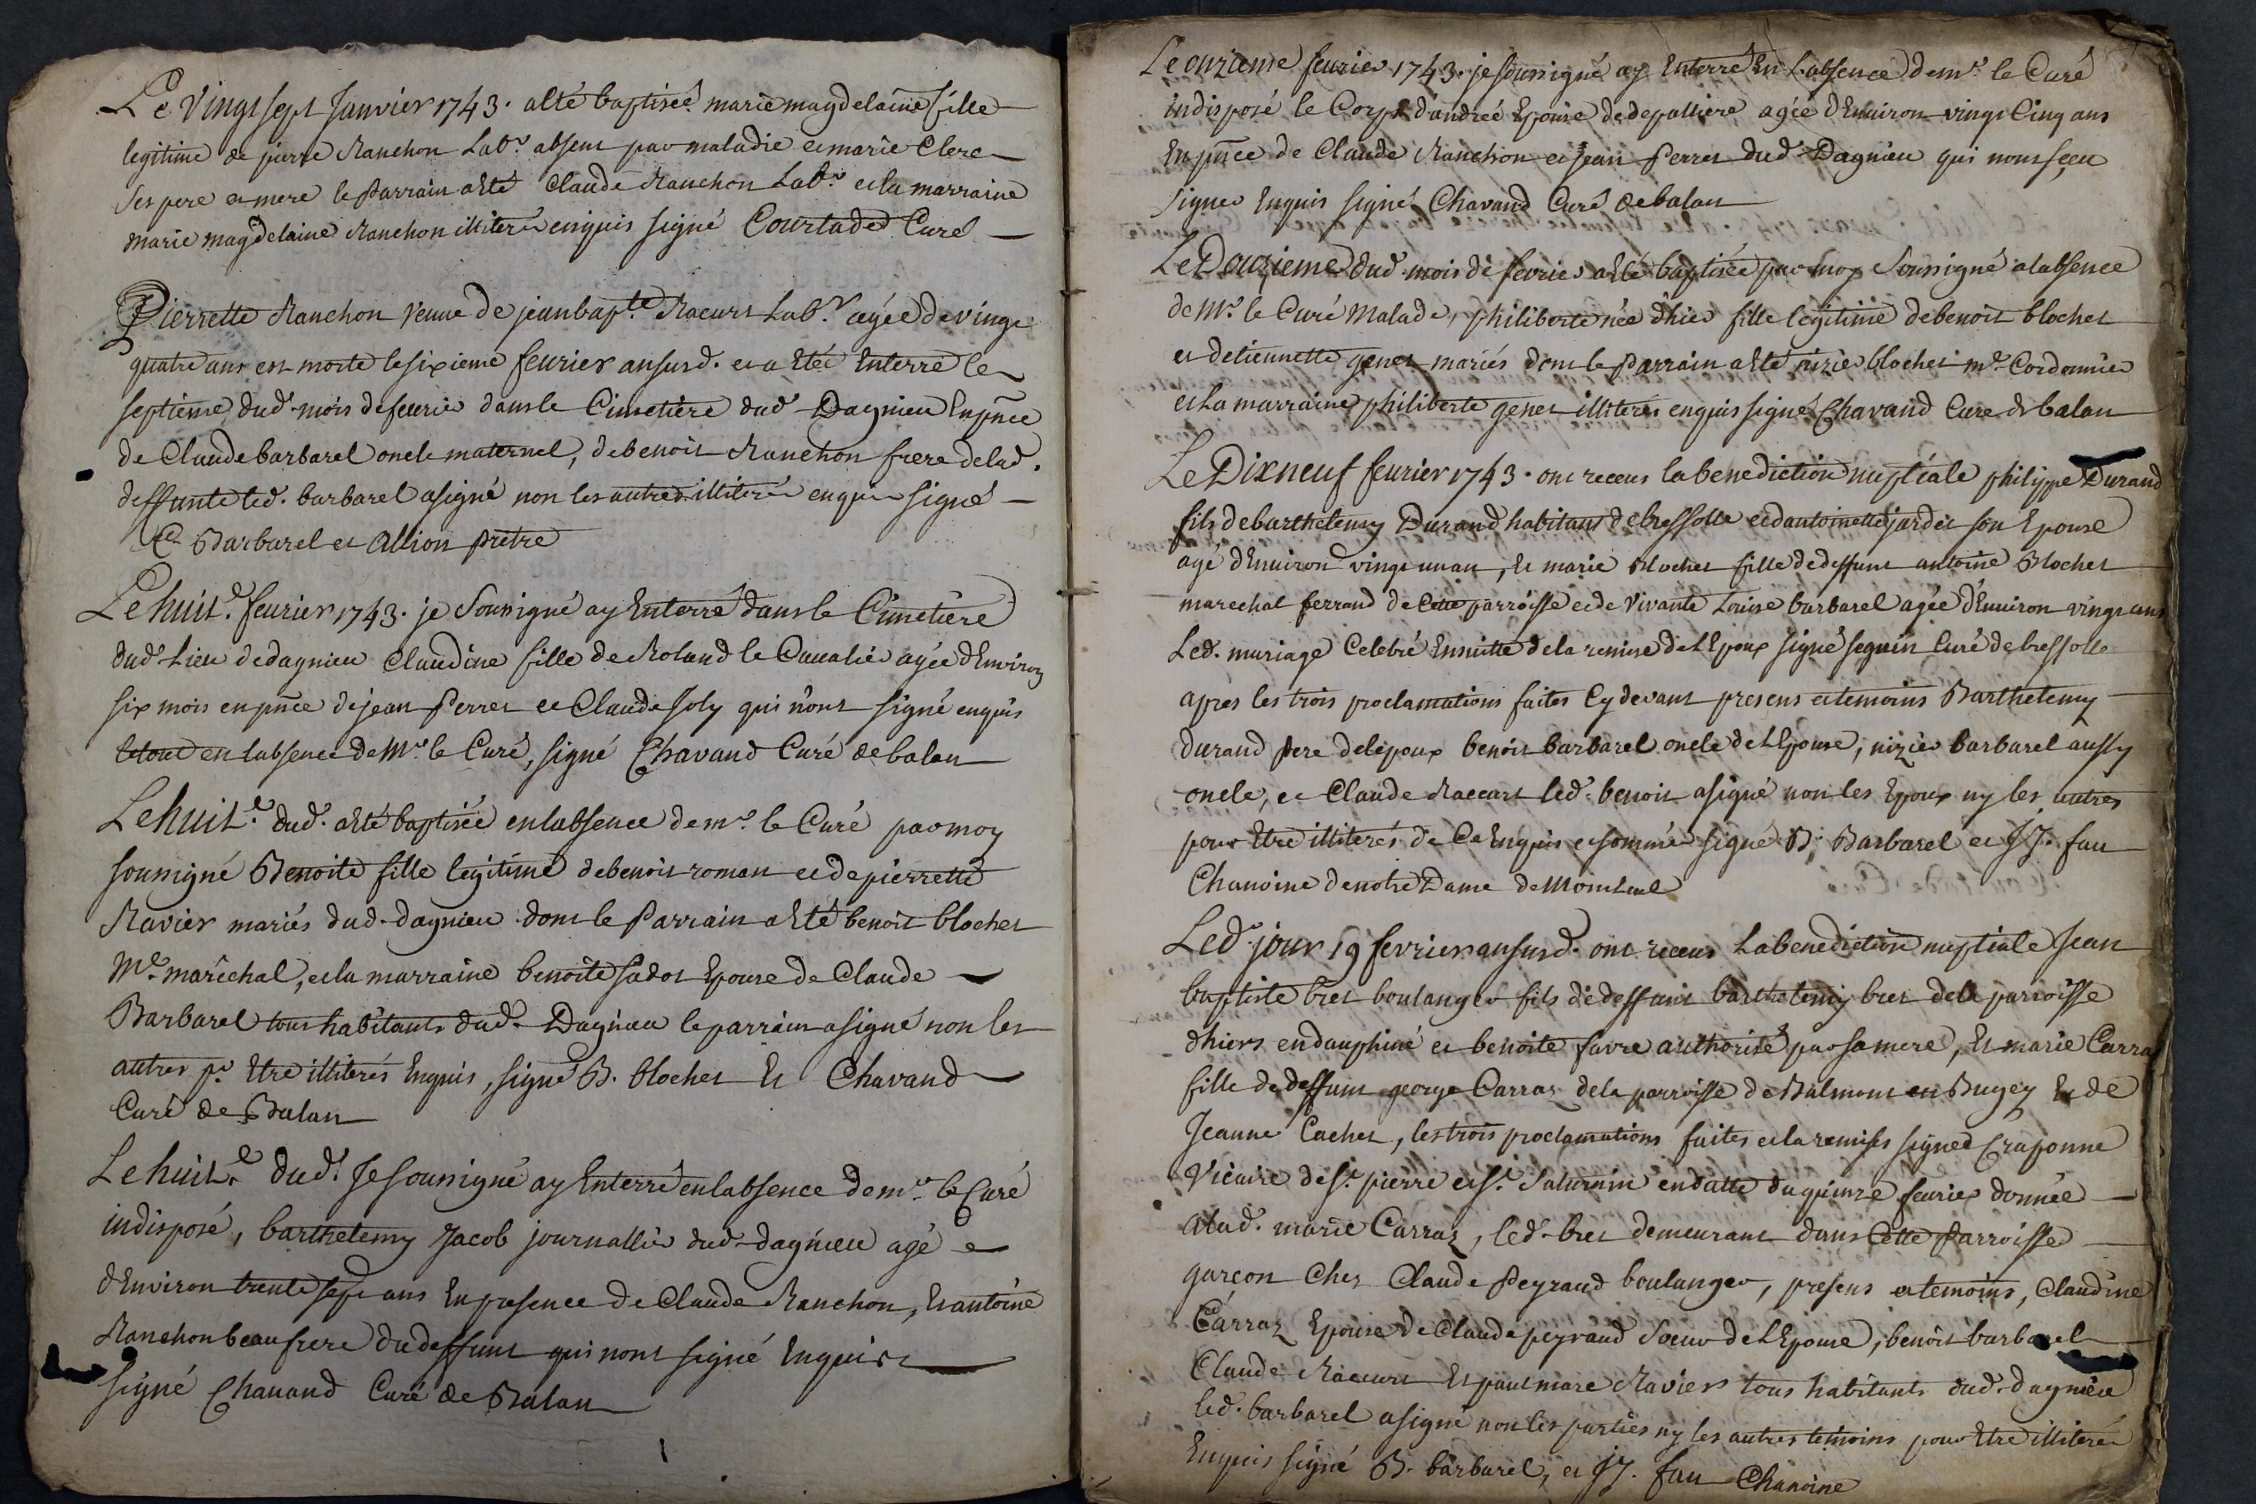 Le Vingt sept Janvier 1743. a Eté baptiseé marie magdelaine fille
legitime de pierre Ranchon Labr. absent par maladie et marie Clerc
Ses pere et mere le Parrain a Eté Claude Ranchon Labr. et la marraine
marie magdelaine Ranchon illiterés enquis signé Courtade Curé
Pierrette Ranchon veuve de jean bapte. Racurt Labr. agée de vingt
quatre ans est morte le sixieme feurier an susd. et a Eteé Enterré le
septieme dud. mois de feurier dans le Cimetiere dud. Dagnieu En pnce
de Claude barbarel oncle maternel, de benoit Ranchon frere de lad.
deffunte led. barbarel a signé non les autres illiterés enquis signé
C Barbarel et Allion prêtre
Le huite. feurier 1743. je Soussigné ay Enterré dans le Cimetiere
dud. Lieu de dagnieu Claudine fille de Roland le Caualié agée d'Environ
six mois en pnce de jean Perret et Claude Joly qui n'ont signé enquis
le tout en l'absence de Mr. le Curé, signé Chavand Curé de balan
Le huite. dud. a Eté baptisée en l'absence de mr. le Curé par moy
soussigné Benoite fille legitime de benoit roman et de pierrette
Ravier mariés dud. dagnieu dont le Parrain a Eté benoit blochet
Me. maréchal, et la marraine benoite sadot Epouse de Claude
Barbarel tous habitants dud. Dagnieu le parrain a signé non les
autres pr. Etre illiterés Enquis, signé B. blochet Et Chavand
Curé de Balan
Le huite. dud. Je soussigné ay Enterré en l'absence de mr. le Curé
indisposé, barthelemy Jacob journallié dud. dagnieu agé
d'Environ trente sept ans En presence de Claude Ranchon, Et antoine
Ranchon beaufrere du deffunt qui n'ont signé Enquis
signé Chauand Curé de Balan
Le onzieme feurier 1743. je soussigné ay Enterré En L'absence de mr. le Curé
indisposé le Corps d'andreé Epouse de depalliere agée d'Enuiron vingt Cinq ans
En pnce de Claude Ranchon et Jean Perret dud. Dagnieu qui n'ont sceu
signer Enquis signé Chavand Curé de balan
Le Douzieme dud. mois de fevrier a Eté baptisée par moy Soussigné a l'absence
de Mr. le Curé Malade, philiberte née d'hier fille legitime de benoit blochet
et d'etiennette genet mariés dont le Parrain a Eté nizier blochet me. Cordonnier
et La marraine philiberte genet illiterés enquis signé Chavand Curé de balan
Le Dixneuf feurier 1743. ont receus la benediction nuptiale philippe Durand
fils de barthelemy Durand habitant de bressolle et d'antoinette jardet son Epouse
agé d'Enuiron vingt un an, Et marie Blochet fille de deffunt antoine Blochet
marechal ferrand de Cette parroisse et de Vivante Louise barbarel agée d'Enuiron vingt ans
Led. mariage Celebré Ensuitte de la remise de L'Epoux signé seguin Curé de bressolle
apres les trois proclamations faites Cy devant presens et temoins Barthelemy
durand pere de l'epoux benoit barbarel oncle de L'Epouse, nizier barbarel aussy
oncle, et Claude Raccurt led. benoit a signé non les Epoux ny les autres
pour Etre illiterés de Ce Enquis et sommés signé B. Barbarel et J J. fau
Chanoine de notre Dame de Montluel
Led. jour 19 fevrier an susd. ont receus La benediction nuptiale Jean
baptiste bret boulanger fils de deffunt barthelemy bret de la parroisse
d'hiers en dauphiné et benoite favre authorisé par sa mere, Et marie Carraz
fille de deffunt george Carraz de la parroisse de Balmont en Bugey Et de
Jeanne Cachet, les trois proclamations faites et la remises signed Craponne
Vicaire de St. pierre et St. Saturnin en datte du quinze feurier donnée
a lad. marie Carraz, led. bret demeurant dans Cette Parroisse
garçon Chez Claude Peyraud boulanger, presens et temoins, Claudine
Carraz Epouse de Claude peyraud Soeur de L'Epouse, benoit barbarel
Claude Raccurt Et paul marc Ravier tous habitants dud. dagnieu
led. barbarel a signé non les parties ny les autres temoins pour Etre illiterés
Enquis signé B. barbarel, et JJ. fau Chanoine